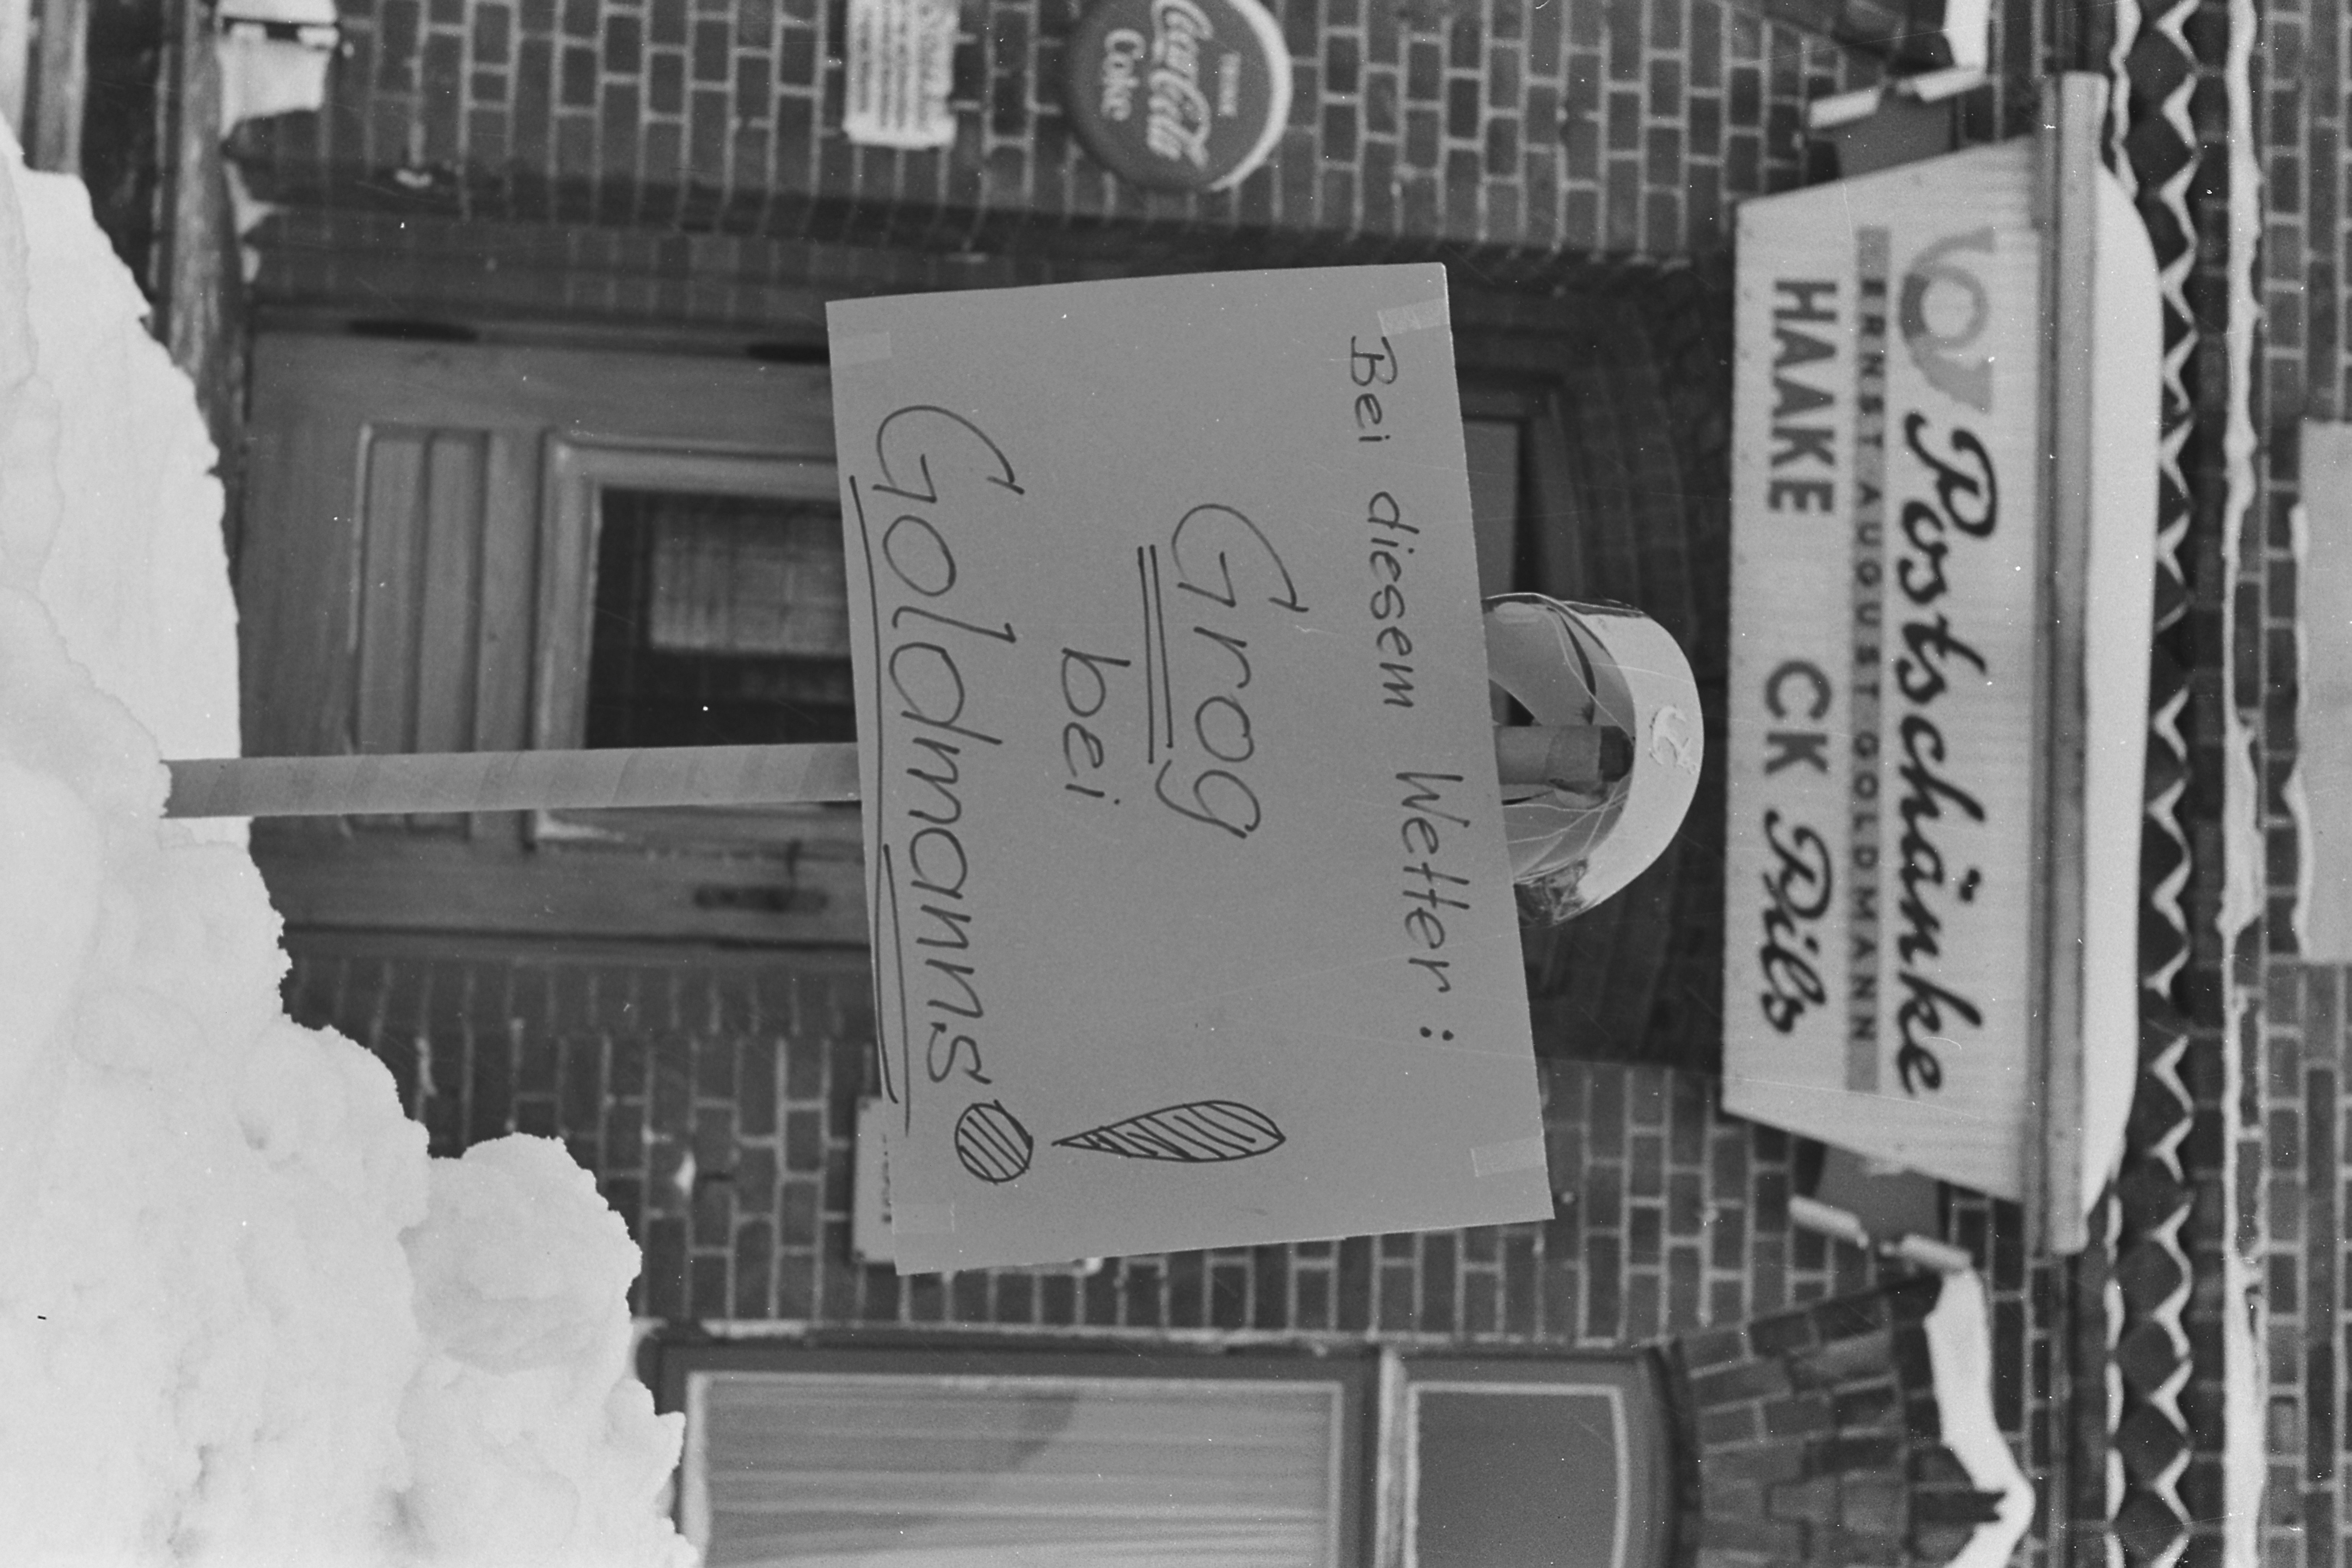 Postschänke
ERNST AUGUST GOLDMANN
HAAKE CK Pils
TRINK
Coca-Cola
Coke
Bei diesem Wetter:
Grog
bei
Goldmanns!